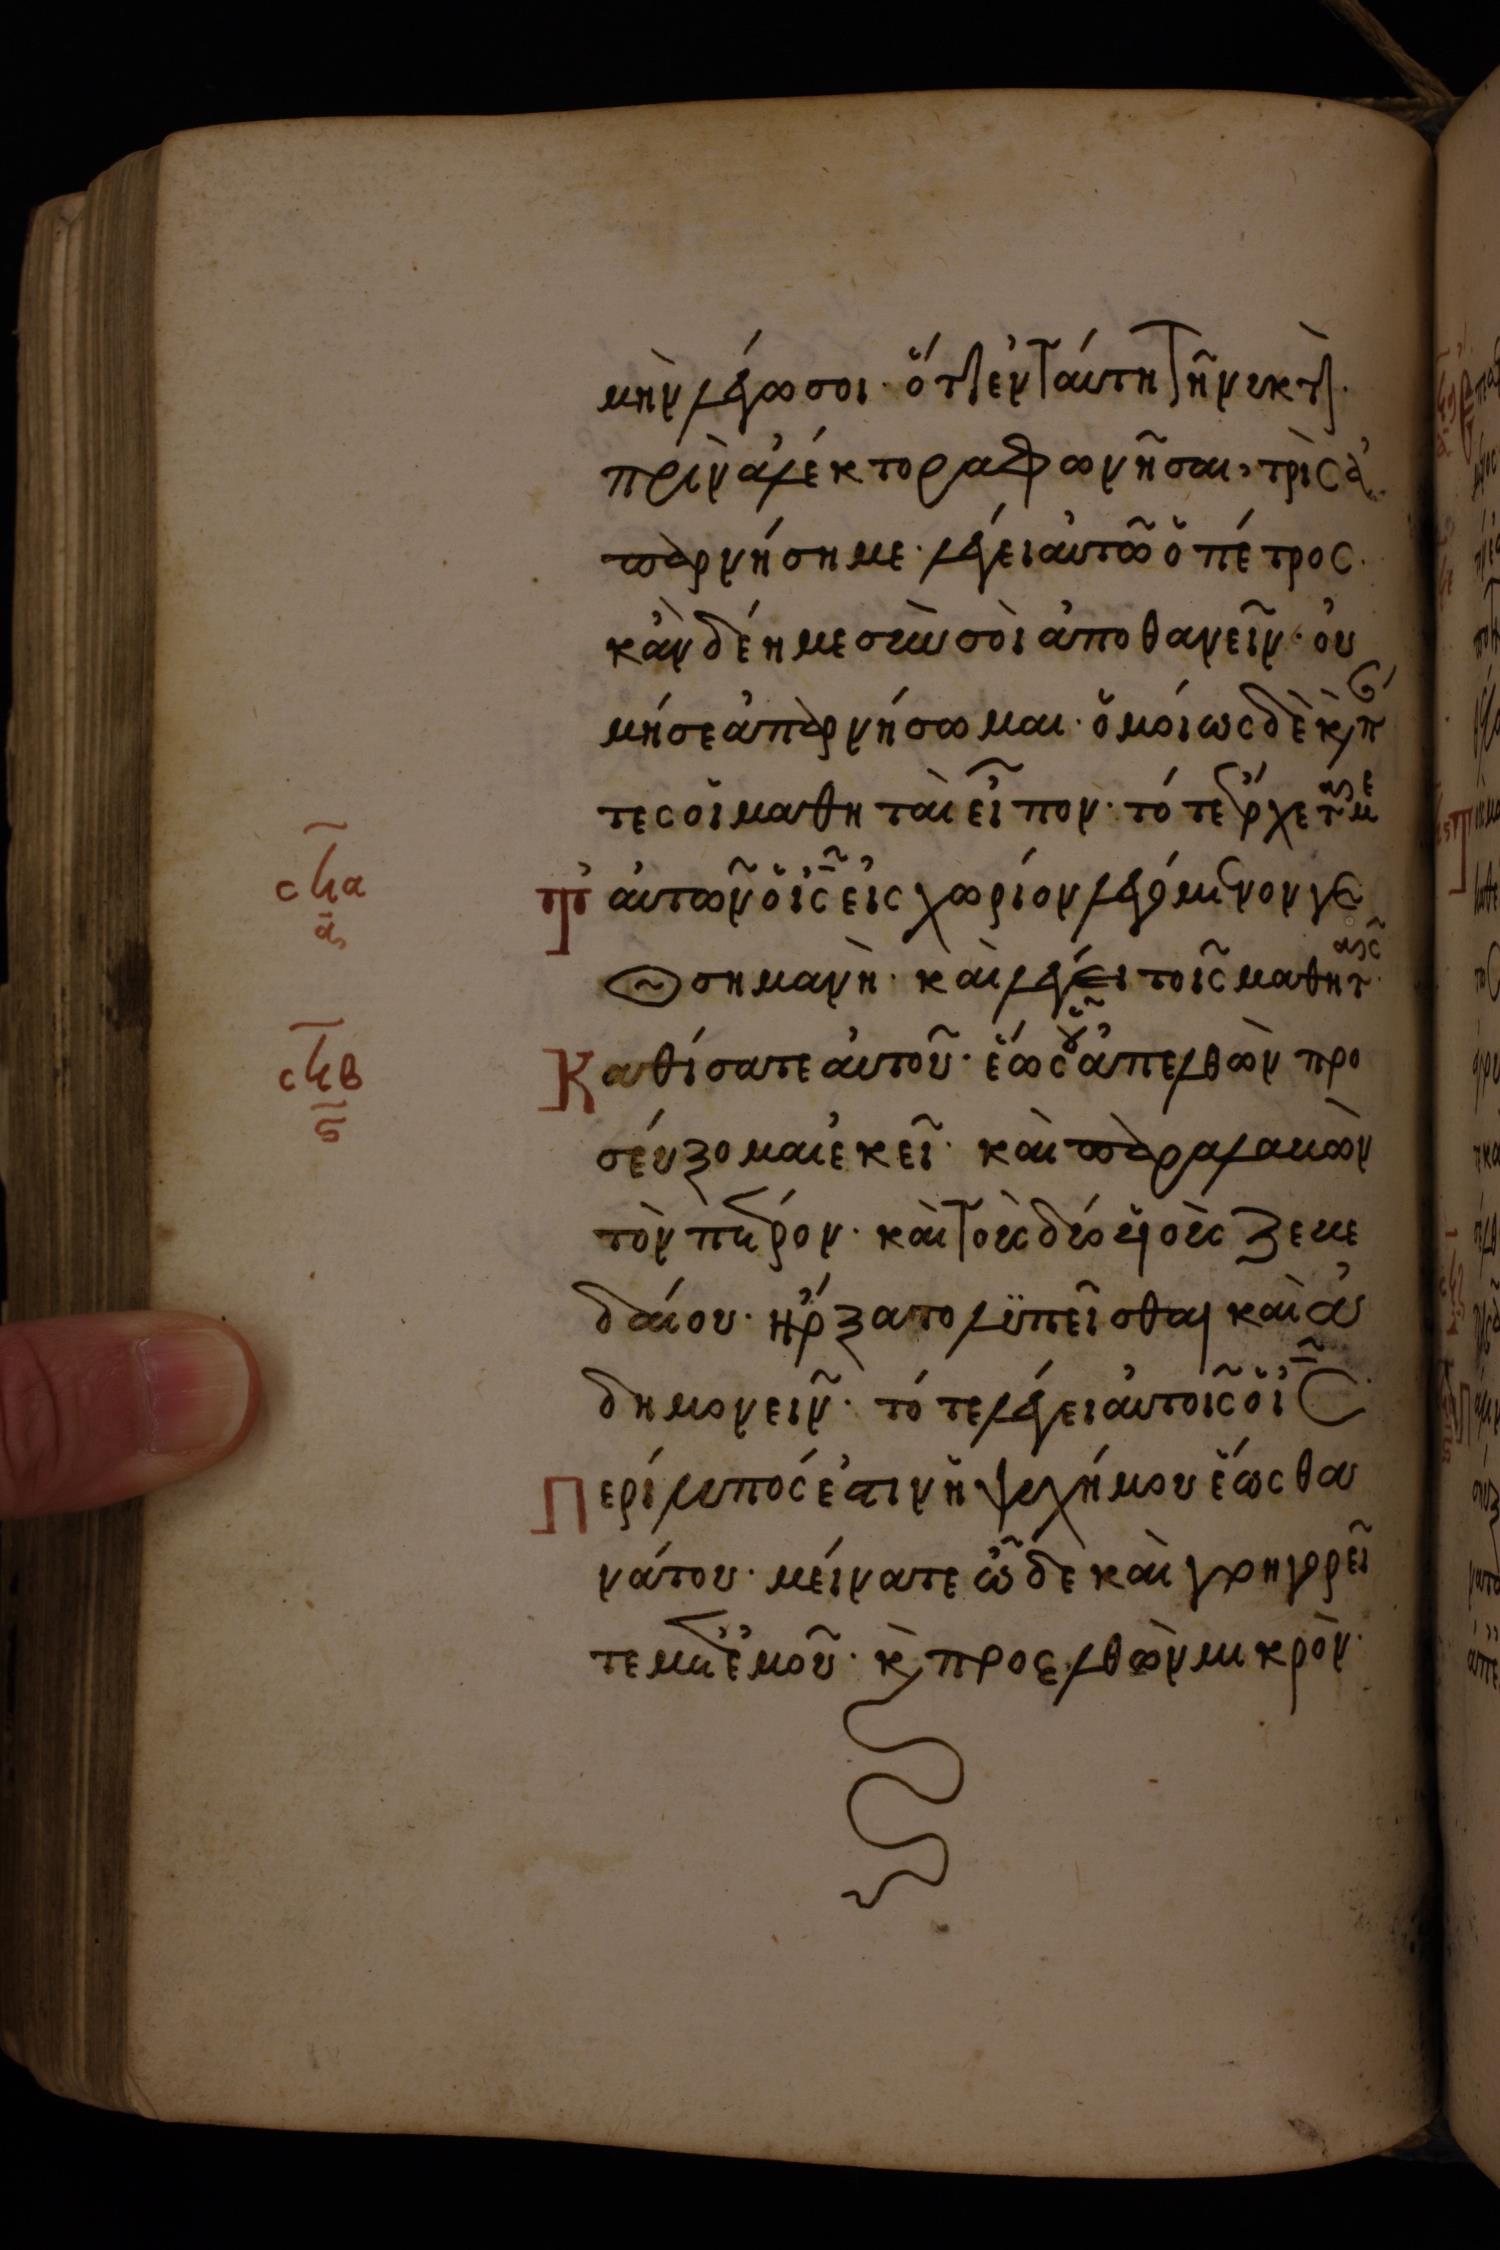 μὴν λέγω σοι· ὅτι ἐν ταύτη τῆ νυκτὶ·
πρὶν ἀλέκτορα φωνῆσαι, τρὶς ἀ
παρνήση με· λέγει αὐτῶ ὁ πέτρος·
κἂν δέη με σὺν σοὶ ἀποθανεῖν· οὐ
μή σε ἀπαρνήσωμαι· ὁμοίως δὲ κ πάν
τες οἱ μαθηταὶ εἶπον· τότε ἔρχεται με
σηα
α
τ αὐτῶν ὁ ις εἰς χωρίον λεγόμενον γε
θσημανὴ· καὶ λέγει τοῖς μαθηταῖς·
σηβ
ς
Καθίσατε αὐτοῦ· ἕως οὗ ἀπελθὼν προ
σεύξομαι ἐκεῖ· καὶ παραλαβὼν
τὸν πέτρον· καὶ τοὺς δύο υἱοὺς ζεβε
δαίου· ἤρξατο λυπεῖσθαι καὶ ἀ
δημονεῖν· τότε λέγει αὐτοῖς ὁ ις
Περίλυπός ἐστιν ἡ ψυχή μου ἕως θα
νάτου· μείνατε ὧδε καὶ γρηγορεῖ
τε μετ ἐμοῦ· κ προελθὼν μικρὸν·